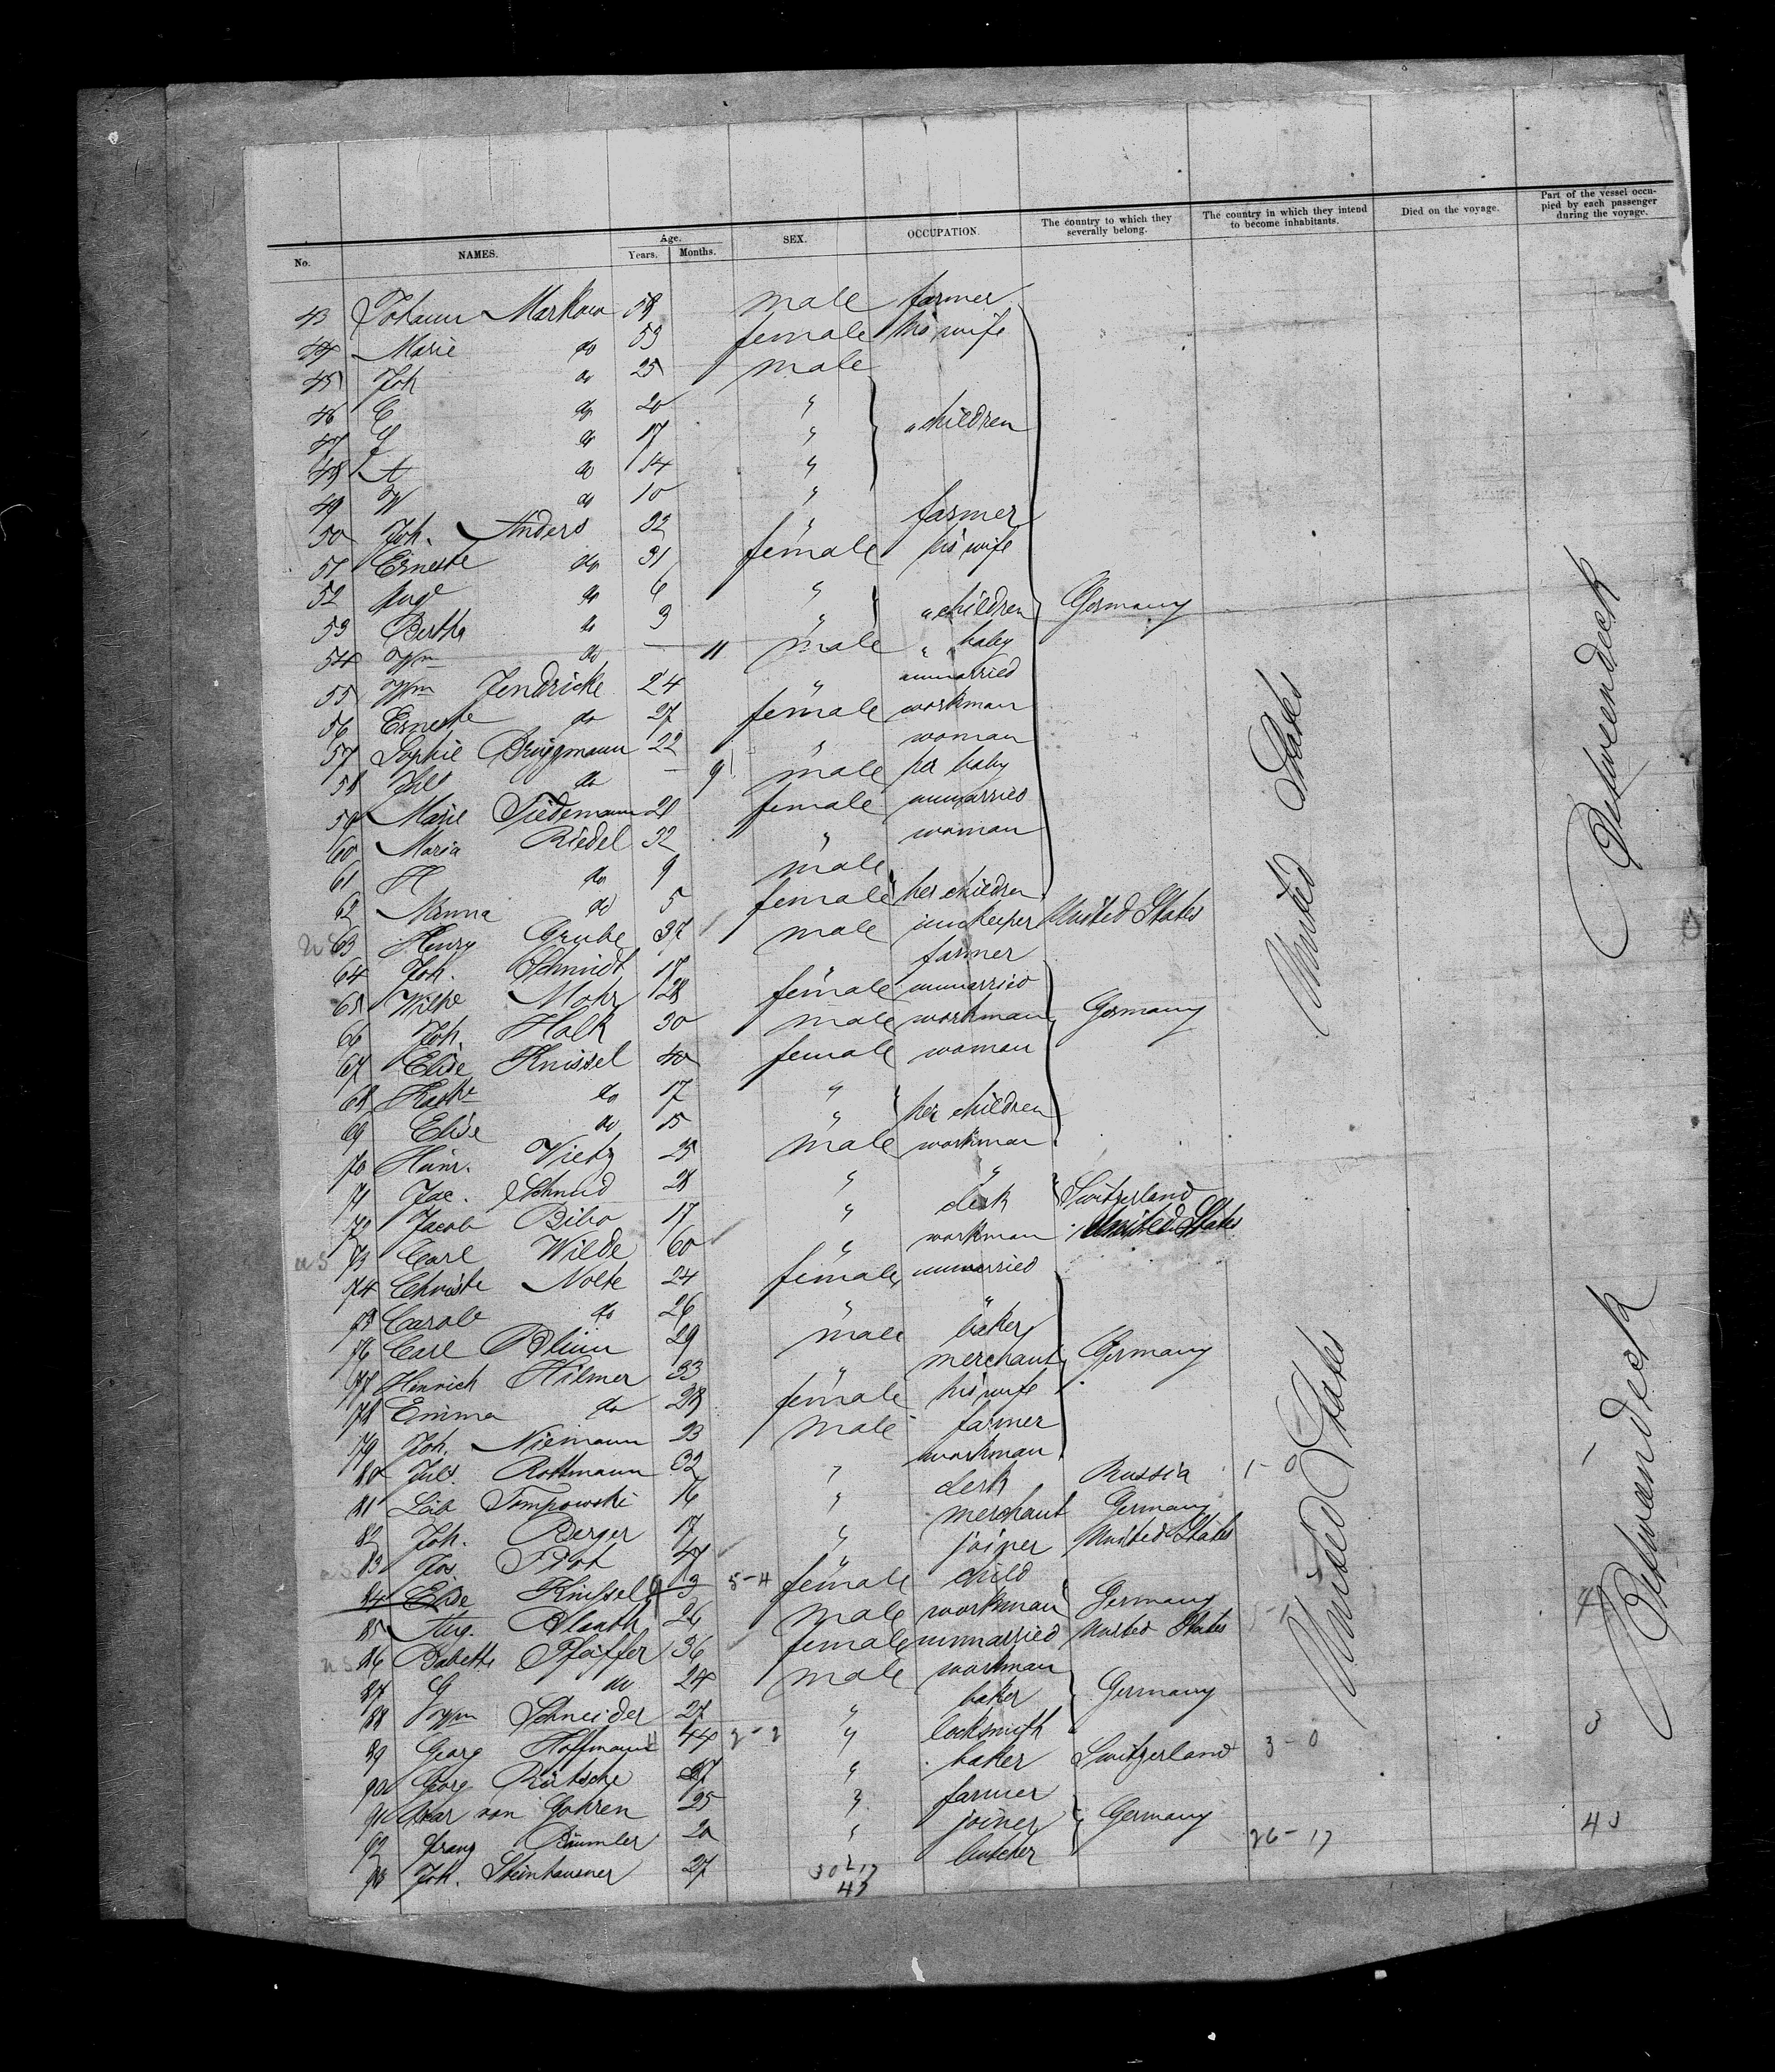 No. NAMES. Age. Years. Months. SEX. OCCUPATION. The country to which they severally belong. The country in which they intend to become inhabitants. Died on the voyage. Part of the vessel occupied by each passenger during the voyage.
43 Johann Markow 58 male farmer
44 Marie do 53 female his wife
45 Joh do 25 male
46 E do 20 "
47 do 17 " " children
48 A do 14 "
49 W do 10 "
50 Joh. Anders 32 " farmer
51 Erneste do 31 female his wife
52 Aug do 6 "
53 Bertha do 3 " " children Germany
54 Wm do — 11 male " baby
55 Wm Jendricke 24 " unmarried
56 Erneste do 27 female workman
57 Sophie Brüggmann 22 " woman
58 Jul do — 9 male her baby
59 Marie Tiedemann 21 female unmarried
60 Maria Riedel 32 " woman
61 H do 9 male
62 Minna do 5 female her children
63 Henry Grube 37 male innkeeper United States
64 Joh. Schmidt 17 " farmer
65 Wilhe Mohr 28 female unmarried
66 Joh. Holk 30 male workman Germany
67 Elise Knissel 40 female woman
68 Kathe do 17 "
69 Elise do 15 " her children
70 Heinr. Vietz 25 male workman
71 Jac. Schmid 28 " " Switzerland
72 Jacob Bibo 17 " clerk
73 Carl Wilde 60 " workman United States
74 Christe Nolte 24 female unmarried
75 Carole do 26 " "
76 Carl Blum 29 male baker
77 Hinrich Hilmer 33 " merchant Germany
78 Emma do 28 female his wife
79 Joh. Niemann 23 male farmer
80 Juls. Rottmann 32 workman
81 Lab Tompowski 16 " clerk Russia 1-0
82 Joh. Berger 17 " merchant Germany
83 Jos. 47 " joiner United States
84 Elise Knissel 3 5-4 female child
85 Aug. 26 male workman Germany
86 Babette Pfaffer 36 female unmarried United States
87 G do 24 male workman
88 Wm Schneider 27 " baker Germany
89 Georg Hoffmann 44 2-2 " locksmith 3
90 Georg Rütsche 27 " baker Switzerland 3-0
91 von Gohren 25 " farmer
92 Franz Bäumler 20 " joiner Germany
93 Joh. Steinhausner 27 butcher 26-17 43
30 17
47
United States
United States
Betweendeck
Betweendeck